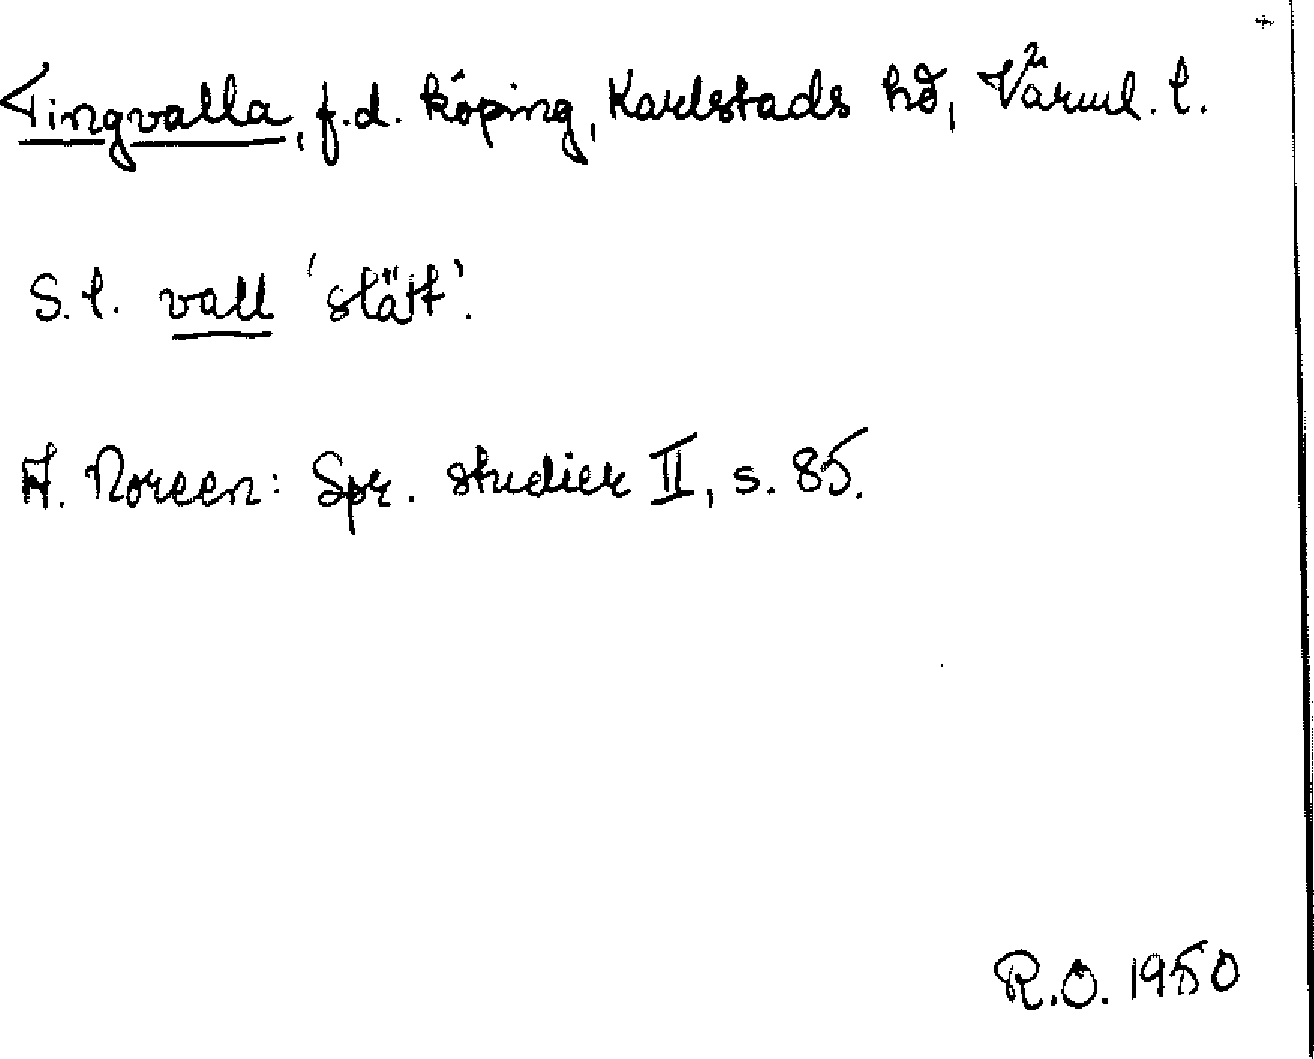 Tingvalla, f.d. köping, Karlstads hd, Värml. l.
S.l. vall 'slätt'.
A. Noreen: Spr. studier II, s. 85.
R.O. 1950